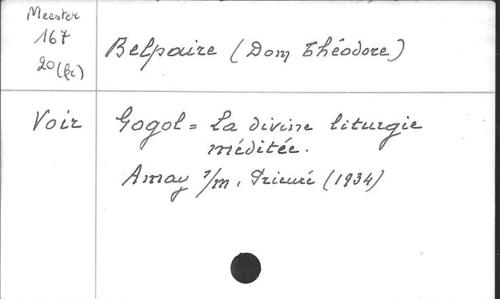 Meester
167
20(fr)
Belpaire (Dom Théodore)
Voir Gogol = La divine liturgie
méditée.
Amay s/m, Prieuré (1934)